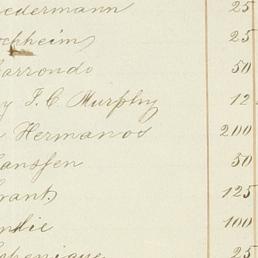 edermann 25
ockheim 25
arrondo 50
y F. C. Murphy 12
Hermanos 200
anssen 50
rant 125
100
25